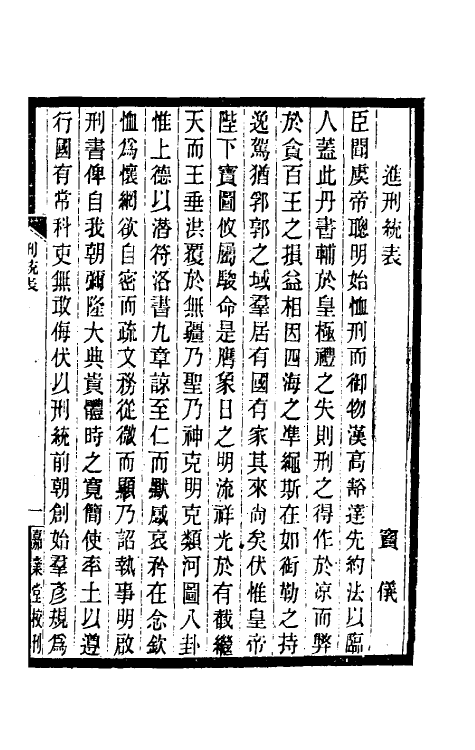 進刑統表 竇儀
臣聞虞帝聰明始恤刑而御物漢高豁達先約法以臨
人蓋此丹書輔於皇極禮之失則刑之得作於凉而弊
於貪百王之損益相因四海之準繩斯在如銜勒之持
逸駕猶郛郭之域羣居有國有家其來尚矣伏惟皇帝
陛下寶圖攸屬駿命是膺象日之明流祥光於有截繼
天而王垂洪覆於無疆乃聖乃神克明克類河圖八卦
惟上德以潛符洛書九章諒至仁而默感哀矜在念欽
恤爲懷網欲自密而疏文務從微而顯乃詔執事明啟
刑書俾自我朝彌隆大典貴體時之寬簡使率土以遵
行國有常科吏無敢侮伏以刑統前朝創始羣彥規爲
刑統表
一
嘉業堂校刊